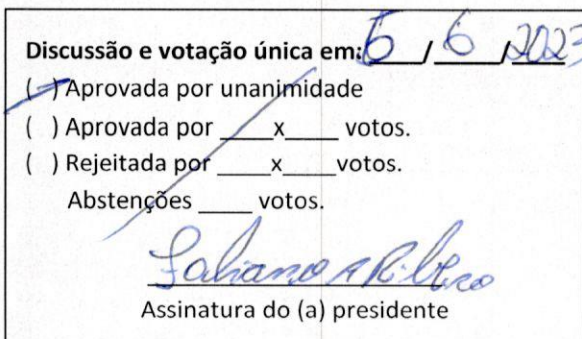 Discussão e votação única em: 5 / 6 / 2023
( ) Aprovada por unanimidade
( ) Aprovada por ____x____ votos.
( ) Rejeitada por ____x____votos.
Abstenções ____ votos.
Fabiano A Ribeiro
Assinatura do (a) presidente